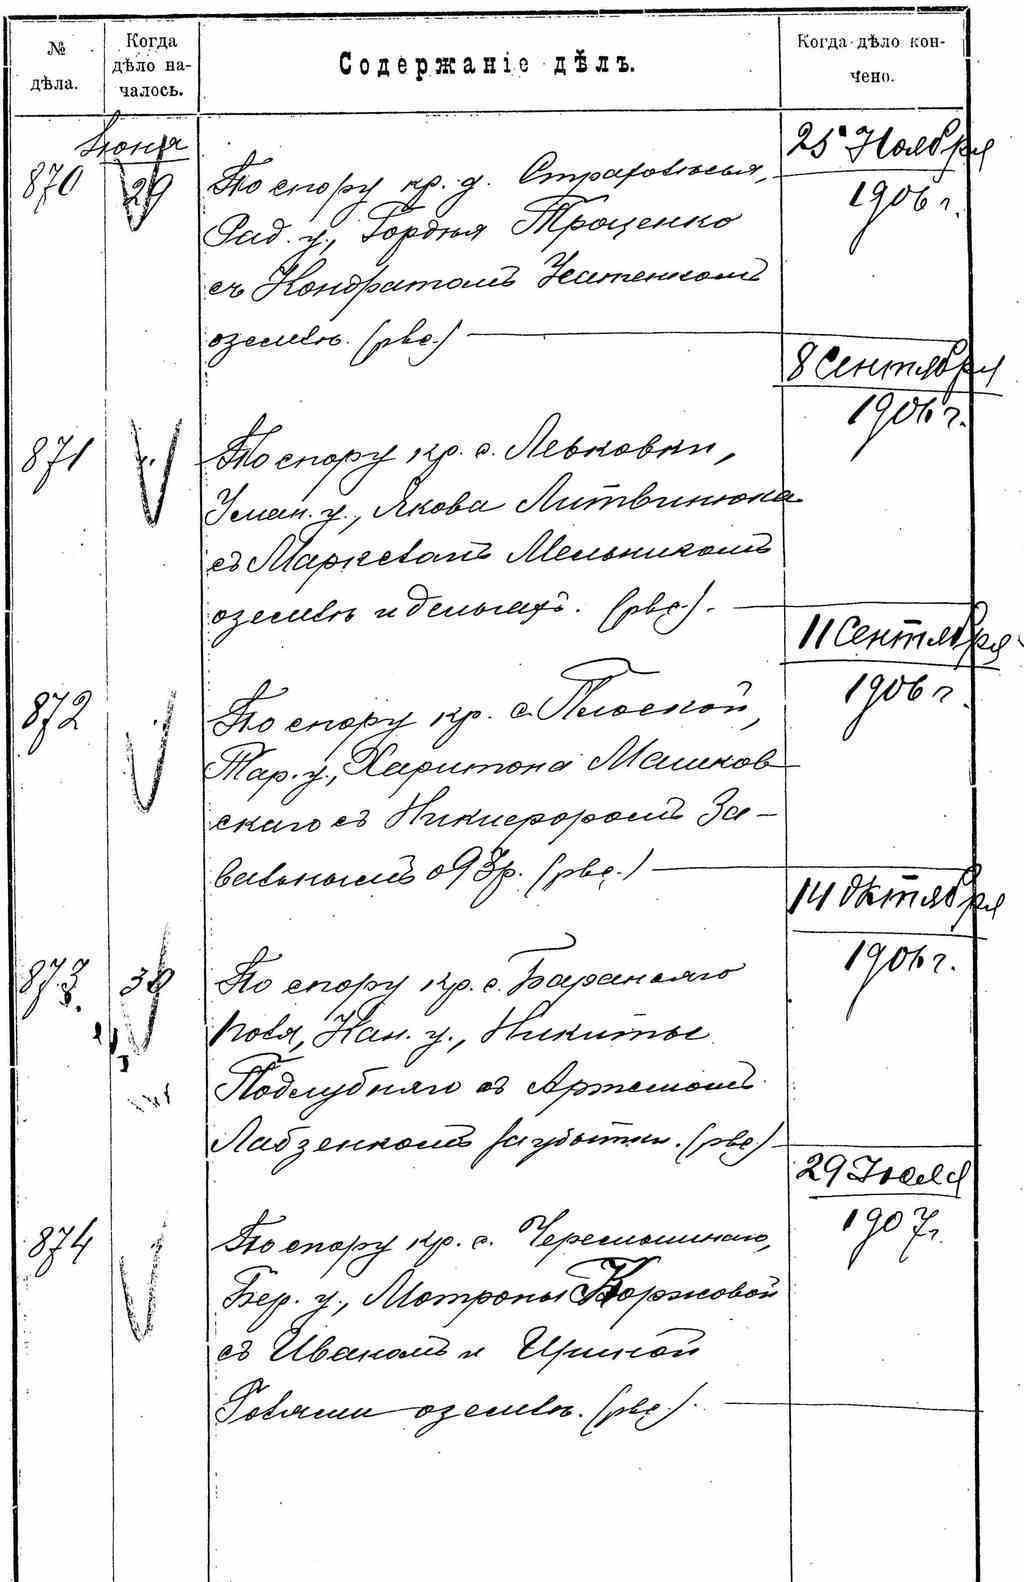 №
дѣла.
Когда
дѣло на-
чалось.
Содержаніе дѣлъ.
Когда дѣло кон-
чено.
Іюня
870
29
По спору кр. д. Страхолѣсья,
Рад. у., Гордѣя Троценко
съ Кондратомъ
о землѣ. (рве.)
25 Ноября
1906 г.
871
По спору кр. с. Левковки,
Уман. у., Якова Литвинюка
съ Маркеломъ Мельникомъ
о землѣ и деньгахъ. (рве.).
8 Сентября
1906 г.
872
По спору кр. с. Плоской,
Тар. у., Харитона Машков
скаго съ Никифоромъ За-
вальнымъ о 93 р. (рве.)
11 Сентября
1906 г.
873
30
По спору кр. с. Бараньяго
поля, Кан. у., Никиты
Подлубняго съ Артемомъ
Лабзенкомъ за убытки. (рве.)
14 Октября
1906 г.
874
По спору кр. с.
Бер. у., Мотроны Коржовой
съ Иваномъ и Ириной
о землѣ. (рве.).
29 Іюля
1907 г.